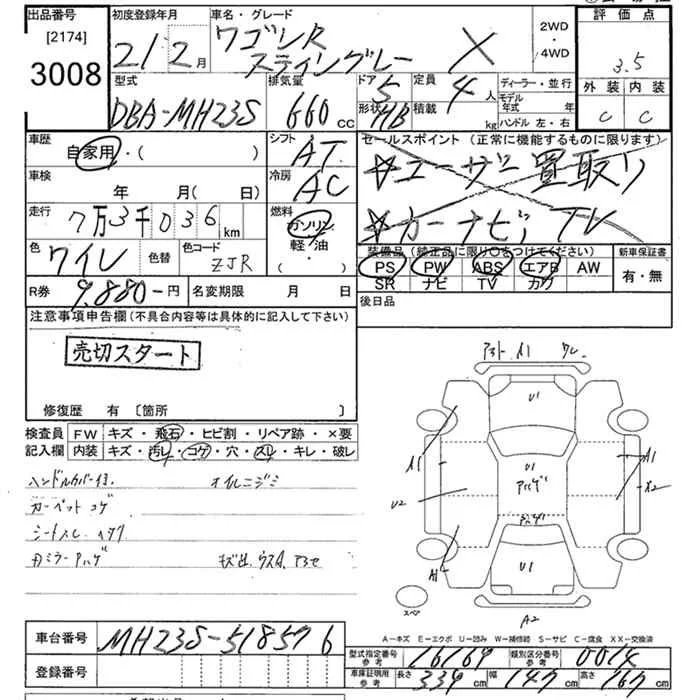 出品番号 初度登録年月 車名・グレード 2WD・4WD 評価点
[2174]
3008
21 2月 ワゴンR スティングレー X 3.5
型式 排気量 ドア 定員 ディーラー・並行 外装 内装
DBA-MH23S 660cc 5 4人 モデル年式 年
形状 HB 積載 kg ハンドル 左・右 C C
車歴 シフト セールスポイント (正常に機能するものに限ります)
自家用・( ) AT ☆ユーザー買取り
車検 冷房
年 月(日) AC ☆カーナビ, TV
走行 燃料
7万3千036km ガソリン
色 色替 色コード 軽・油 装備品 (純正品に限り○をつけてください) 新車保証書
ワイン ZJR ・( ) PS PW ABS エアB AW 有・無
SR ナビ TV カワ
R券 9,880-円 名変期限 月 日 後日品
注意事項申告欄(不具合内容等は具体的に記入して下さい)
売切スタート
修復歴 有 〔箇所 〕
検査員 FW キズ・飛石・ヒビ割・リペア跡・×要
記入欄 内装 キズ・汚レ・コゲ・穴・スレ・キレ・破レ
ハンドルカバー付 オイルニジミ
カーペットコゲ
シートスレ
カミラーハゲ
A1 ワレ
U1
A1 U1 A1
ハゲ
U2
ハゲ
A1 U1
スペア
A2
A-キズ E-エクボ U-凹み W-補修跡 S-サビ C-腐食 XX-交換済
車台番号 MH23S-518576
型式指定番号 参考 16169 類別区分番号 参考 0014
登録番号
車庫証明用 参考 長さ 339cm 幅 147cm 高さ 167cm